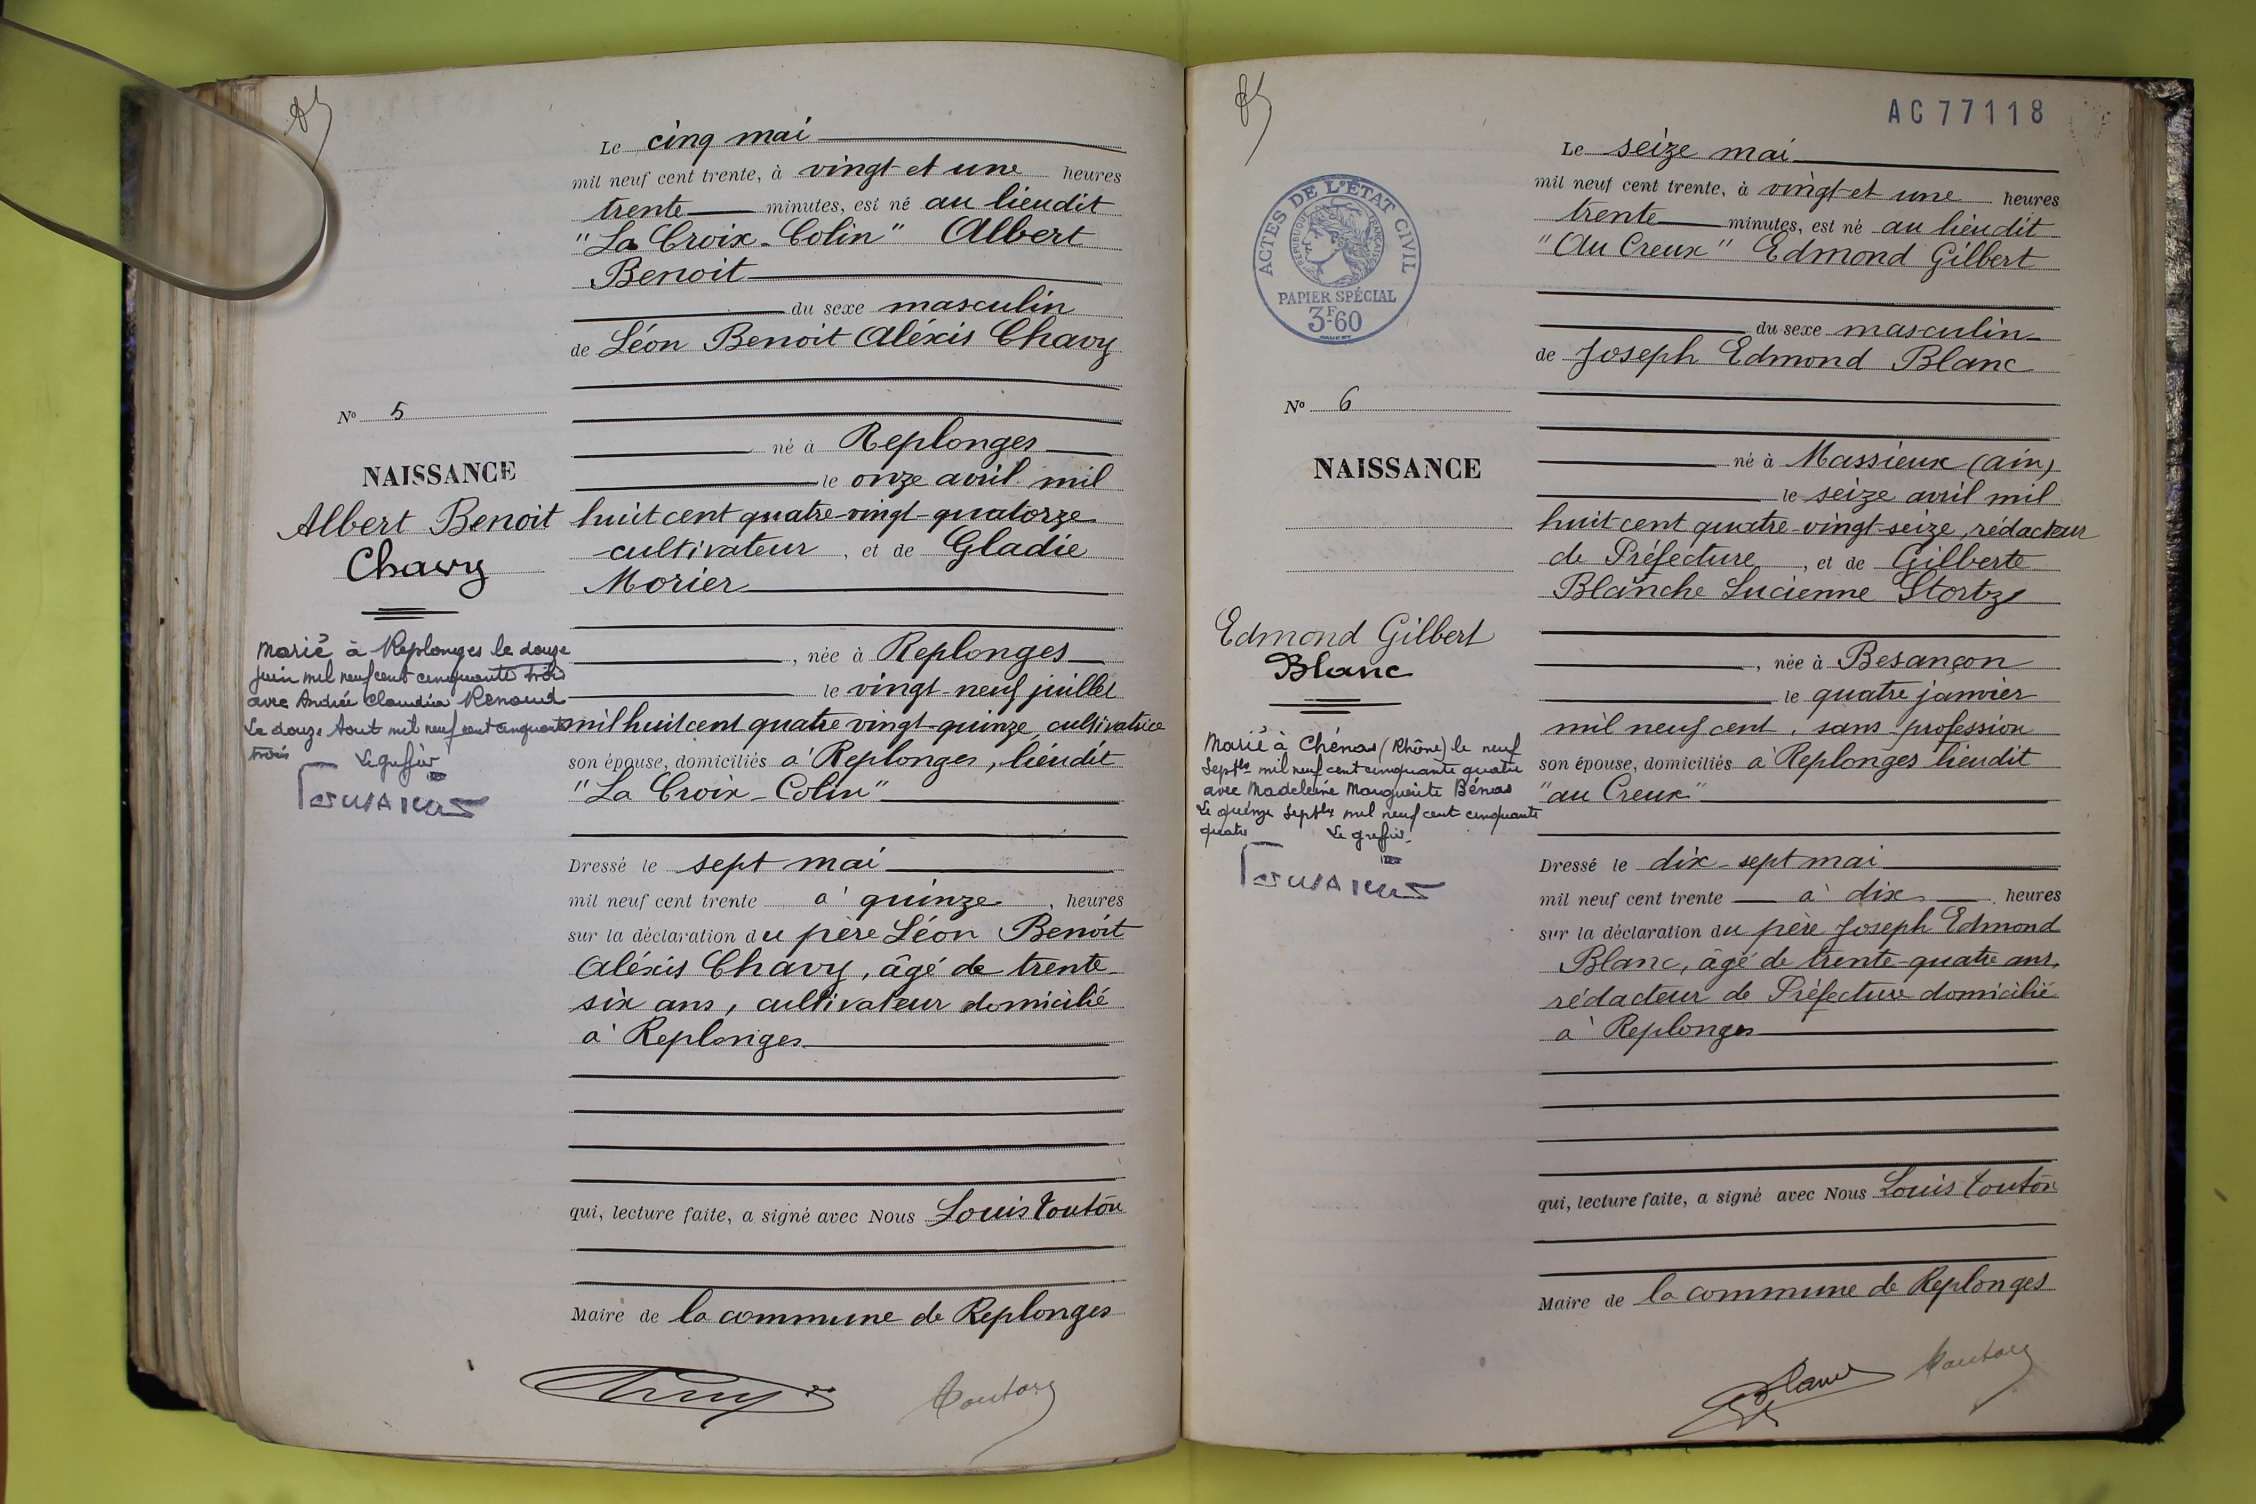 Le cinq mai
mil neuf cent trente, à vingt et une heures
trente minutes, est né au lieudit
"La Croix-Colin" Albert
Benoit
du sexe masculin
de Léon Benoit Aléxis Chavy
né à Replonges
le onze avril mil
huit cent quatre-vingt-quatorze
cultivateur, et de Gladie
Morier
, née à Replonges
le vingt-neuf juillet
mil huit cent quatre vingt-quinze, cultivatrice
son épouse, domiciliés à Replonges, lieudit
"La Croix-Colin"
Dressé le sept mai
mil neuf cent trente à quinze, heures
sur la déclaration du père Léon Benoit
Aléxis Chavy, âgé de trente-
six ans, cultivateur domicilié
à Replonges
qui, lecture faite, a signé avec Nous Louis Touton
Maire de la commune de Replonges
Touton
No 5
NAISSANCE
Albert Benoit
Chavy
Marié à Replonges le douze
juin mil neuf cent cinquante trois
avec Andrée Claudia Renoud
Le douze Aout mil neuf cent cinquante
trois Le greffier
AC 77118
ACTES DE L'ÉTAT CIVIL
RÉPUBLIQUE FRANÇAISE
PAPIER SPÉCIAL
3F60
Le seize mai
mil neuf cent trente, à vingt et une heures
trente minutes, est né au lieudit
"Au Creux" Edmond Gilbert
du sexe masculin
de Joseph Edmond Blanc
né à Massieux (ain)
le seize avril mil
huit cent quatre vingt-seize, rédacteur
de Préfecture, et de Gilberte
Blanche Lucienne Stortz
, née à Besançon
le quatre janvier
mil neuf cent, sans profession
son épouse, domiciliés à Replonges lieudit
"au Creux"
Dressé le dix-sept mai
mil neuf cent trente à dix, heures
sur la déclaration du père Joseph Edmond
Blanc, âgé de trente-quatre ans,
rédacteur de Préfecture domicilié
à Replonges
qui, lecture faite, a signé avec Nous Louis Touton
Maire de la commune de Replonges
Blanc Touton
No 6
NAISSANCE
Edmond Gilbert
Blanc
Marié à Chénas (Rhône) le neuf
Septbre mil neuf cent cinquante quatre
avec Madeleine Marguerite Bénas
Le quinze Septbre mil neuf cent cinquante
quatre Le greffier